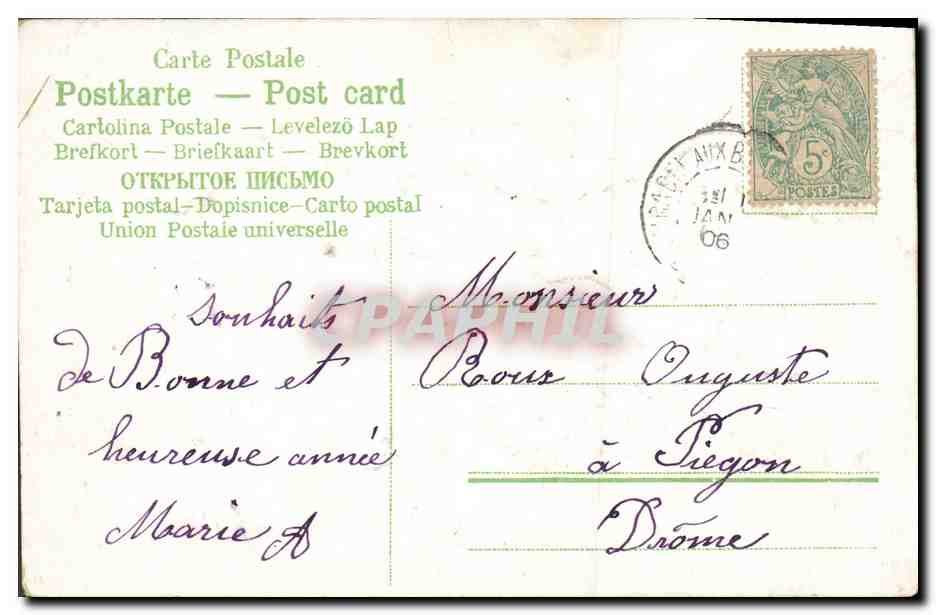 Carte Postale
Postkarte — Post card
Cartolina Postale — Levelező Lap
Brefkort — Briefkaart — Brevkort
ОТКРЫТОЕ ПИСЬМО
Tarjeta postal-Dopisnice-Carto postal
Union Postale universelle
AUX B
JAN
06
5c
POSTES
CPAPHIL
souhaits
de Bonne et
heureuse année
Marie A
Monsieur
Roux Auguste
à Piégon
Drôme